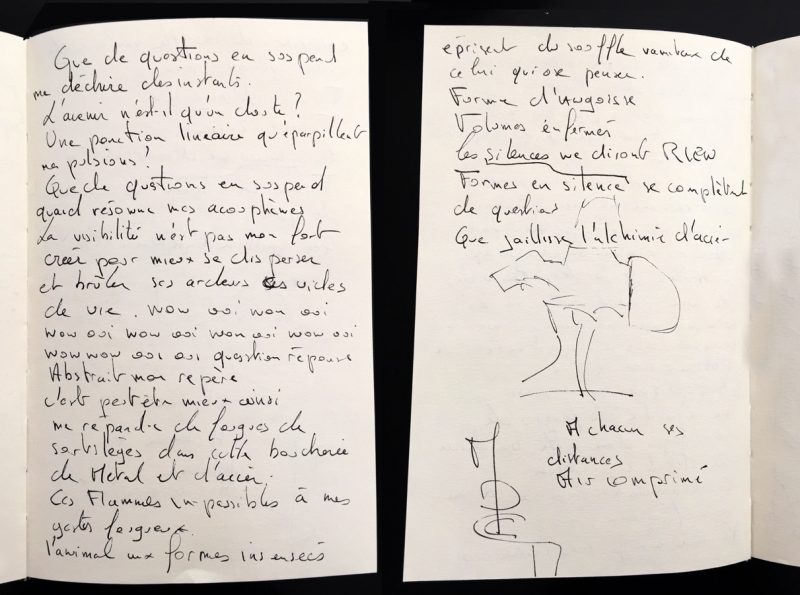 Que de questions en suspend
me déchire des instants.
L'avenir n'est-il qu'un doute ?
Une ponction linéaire qu'éparpillent
mes pulsions ?
Que de questions en suspend
quand résonne mes acouphènes
La visibilité n'est pas mon fort
créer pour mieux se disperser
et brûler ses ardeurs vides
de vie. non oui non oui
non oui non oui non oui non oui
non non oui oui question réponse
Abstrait mon repère
c'est peut être mieux ainsi
me répandre de fougues de
sortilèges dans cette boucherie
de Métal et d'acier.
Ces Flammes impassibles à mes
gestes fougueux.
l'animal aux formes insensées
éprisent du souffle vaniteux de
celui qui ose penser.
Forme d'Angoisse
Volumes enfermés
Les silences ne diront RIEN
Formes en silence se complètent
de questions
Que jaillisse l'alchimie d'acier
A chacun ses
distances
Air comprimé